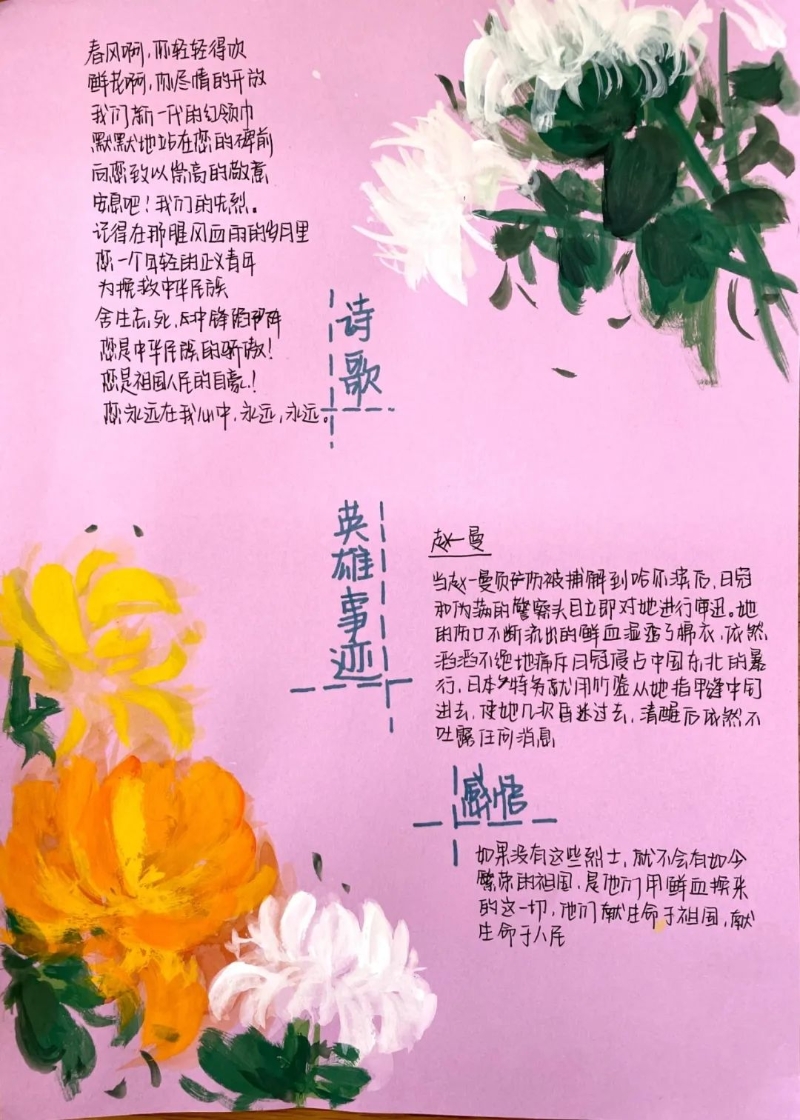 春风啊,你轻轻得吹
鲜花啊,你尽情的开放
我们新一代的红领巾
默默地站在您的碑前
向您致以崇高的敬意
安息吧!我们的先烈。
记得在那腥风血雨的岁月里
您一个年轻的正义青年
为挽救中华民族
舍生忘死,冲锋陷阵
您是中华民族的骄傲!
您是祖国人民的自豪!
您永远在我心中,永远,永远。
诗歌
英雄事迹
赵一曼
当赵一曼负伤被捕解到哈尔滨后,日寇
和伪满的警察头目立即对她进行审迅。她
的伤口不断流出的鲜血湿透了棉衣,依然
滔滔不绝地痛斥日寇侵占中国东北的暴
行,日本特务就用竹签从她指甲缝中钉
进去,使她几次昏迷过去,清醒后依然不
吐露任何消息
感悟
如果没有这些烈士,就不会有如今
繁荣的祖国,是他们用鲜血换来
的这一切,他们献生命于祖国,献
生命于人民